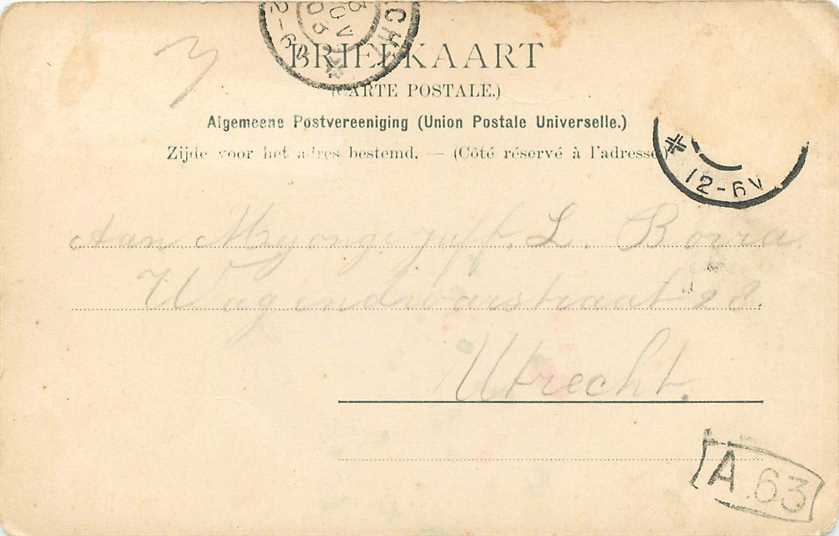 BRIEFKAART
(CARTE POSTALE.)
Algemeene Postvereeniging (Union Postale Universelle.)
Zijde voor het adres bestemd. — (Côté réservé à l'adresse.)
12-6V
Aan Mejonge juff. L. Bovra
Wagendwarsstraat 28.
Utrecht.
A.63